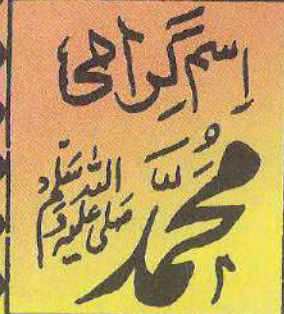 اِسمِ گَرامی
مُحَمَّد
صلی اللہ علیہ وسلم